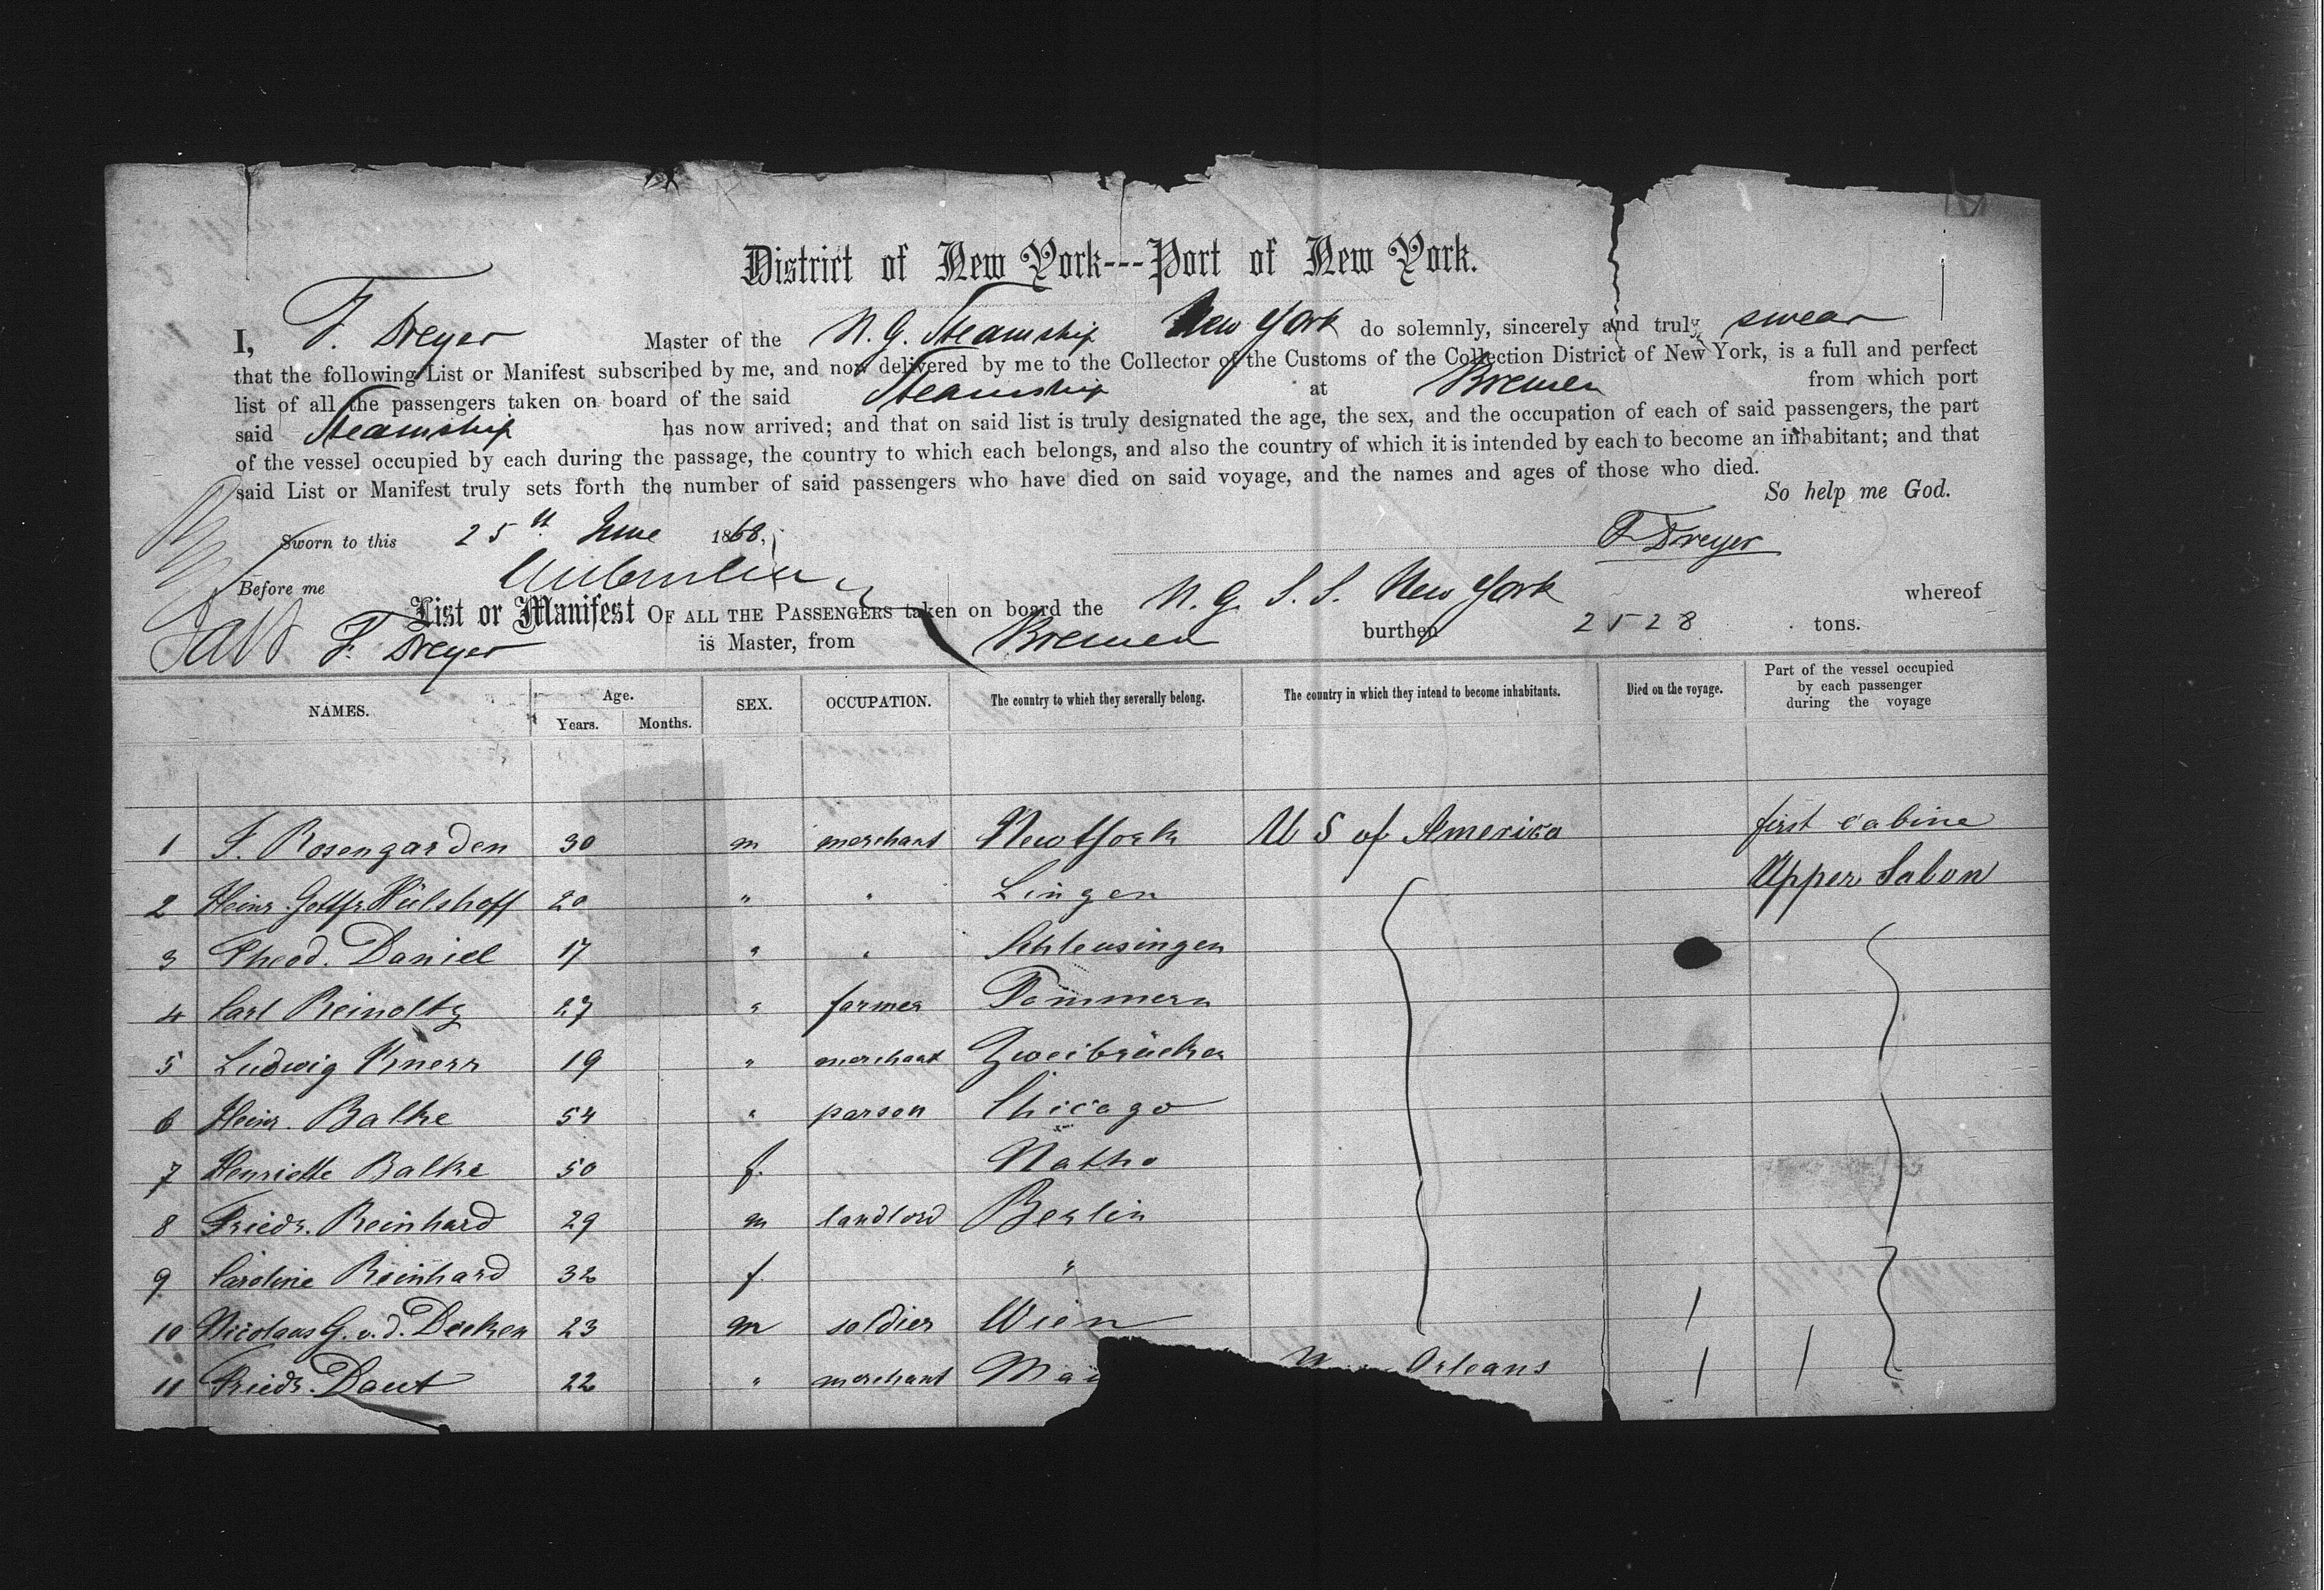 District of New York---Port of New York.
I, F. Dreyer Master of the N. G. Steamship New York do solemnly, sincerely and truly swear
that the following List or Manifest subscribed by me, and now delivered by me to the Collector of the Customs of the Collection District of New York, is a full and perfect
list of all the passengers taken on board of the said Steamship at Bremen from which port
said Steamship has now arrived; and that on said list is truly designated the age, the sex, and the occupation of each of said passengers, the part
of the vessel occupied by each during the passage, the country to which each belongs, and also the country of which it is intended by each to become an inhabitant; and that
said List or Manifest truly sets forth the number of said passengers who have died on said voyage, and the names and ages of those who died.
So help me God.
Sworn to this 25th June 1868, F Dreyer
Before me
List or Manifest OF ALL THE PASSENGERS taken on board the N. G. S. S. New York whereof
F. Dreyer is Master, from Bremen burthen 2528 tons.
NAMES. Age. Years. Months. SEX. OCCUPATION. The country to which they severally belong. The country in which they intend to become inhabitants. Died on the voyage. Part of the vessel occupied by each passenger during the voyage
1 F. Rosengarden 30 m merchant New York U S of America first cabine
Upper Salon
2 Heinr. Gottfr Hülshoff 20 " " Lingen
3 Theod. Daniel 17 " " Schleusingen
4 Carl Reinoltz 27 " farmer Pommern
5 Ludwig Knerr 19 " merchant Zweibrücken
6 Heinr. Balke 54 " parson Chicago
7 Henriette Balke 50 f. Natho
8 Friedr. Reinhard 29 m landlord Berlin
9 Caroline Reinhard 32 f. "
10 Nicolaus G. v. d. Decken 23 m soldier Wien
11 Friedr. Daut 22 " merchant Orleans